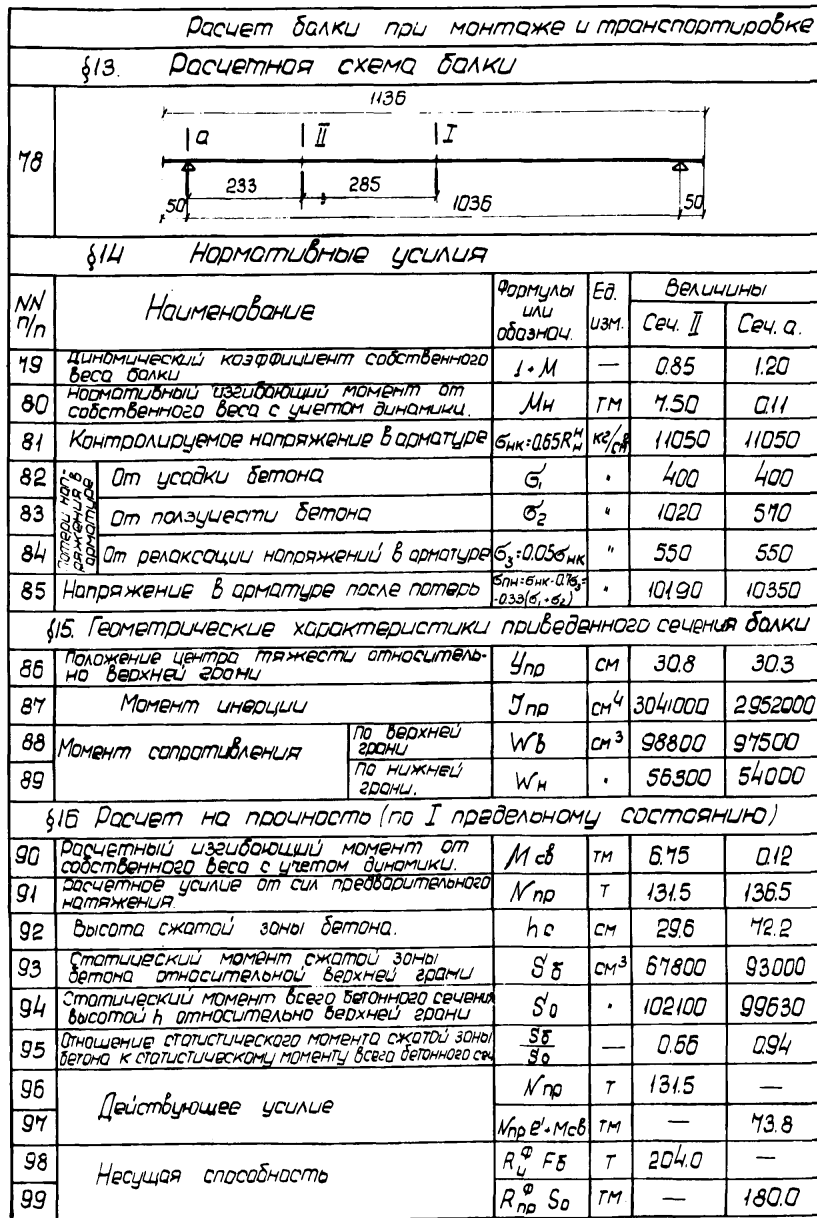 Расчет балки при монтаже и транспортировке
§13. Расчетная схема балки
78
1136
а II I
233 285
50 1036 50
§14 Нормативные усилия
NN п/п Наименование Формулы или обознач. Ед. изм. Величины
Сеч. II Сеч. а.
79 Динамический коэффициент собственного веса балки 1+М — 0.85 1.20
80 Нормативный изгибающий момент от собственного веса с учетом динамики. Мн тм 7.50 0.11
81 Контролируемое напряжение в арматуре σнк=0.65Rнн кг/см² 11050 11050
Потери напряжения в арматуре
82 От усадки бетона σ1 " 400 400
83 От ползучести бетона σ2 " 1020 570
84 От релаксации напряжений в арматуре σ3=0.05σнк " 550 550
85 Напряжение в арматуре после потерь σпн=σнк-0.7σ3=-0.33(σ1+σ2) " 10190 10350
§15. Геометрические характеристики приведенного сечения балки
86 Положение центра тяжести относительно верхней грани Упр см 30.8 30.3
87 Момент инерции Jпр см4 3041000 2952000
88 Момент сопротивления По верхней грани Wв см3 98800 97500
89 По нижней грани. Wн " 56300 54000
§16 Расчет на прочность (по I предельному состоянию)
90 Расчетный изгибающий момент от собственного веса с учетом динамики. М св тм 6.75 0.12
91 Расчетное усилие от сил предварительного натяжения. N пр т 131.5 136.5
92 Высота сжатой зоны бетона. hс см 29.6 72.2
93 Статический момент сжатой зоны бетона относительной верхней грани Sб см3 67800 93000
94 Статический момент всего бетонного сечения высотой h относительно верхней грани S0 " 102100 99630
95 Отношение статистического момента сжатой зоны бетона к статистическому моменту всего бетонного сеч Sб/S0 — 0.66 0.94
96 Действующее усилие N пр т 131.5 —
97 Nпр e'+Mсв тм — 73.8
98 Несущая способность RиФ Fб т 204.0 —
99 RпрФ S0 тм — 180.0